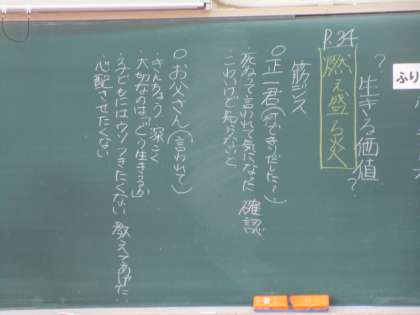 P.34
?生きる価値?
燃え盛る炎
ふり
筋ジス
○正一君(何できいだした?)
・死ぬって言われて気になった 確認
・こわいけど知らないと
○お父さん(言われて)
・きんちょう 深こく
・大切なのは「どう生きるか」
・子どもにはウソつきたくない 教えてあげた
・心配させたくない